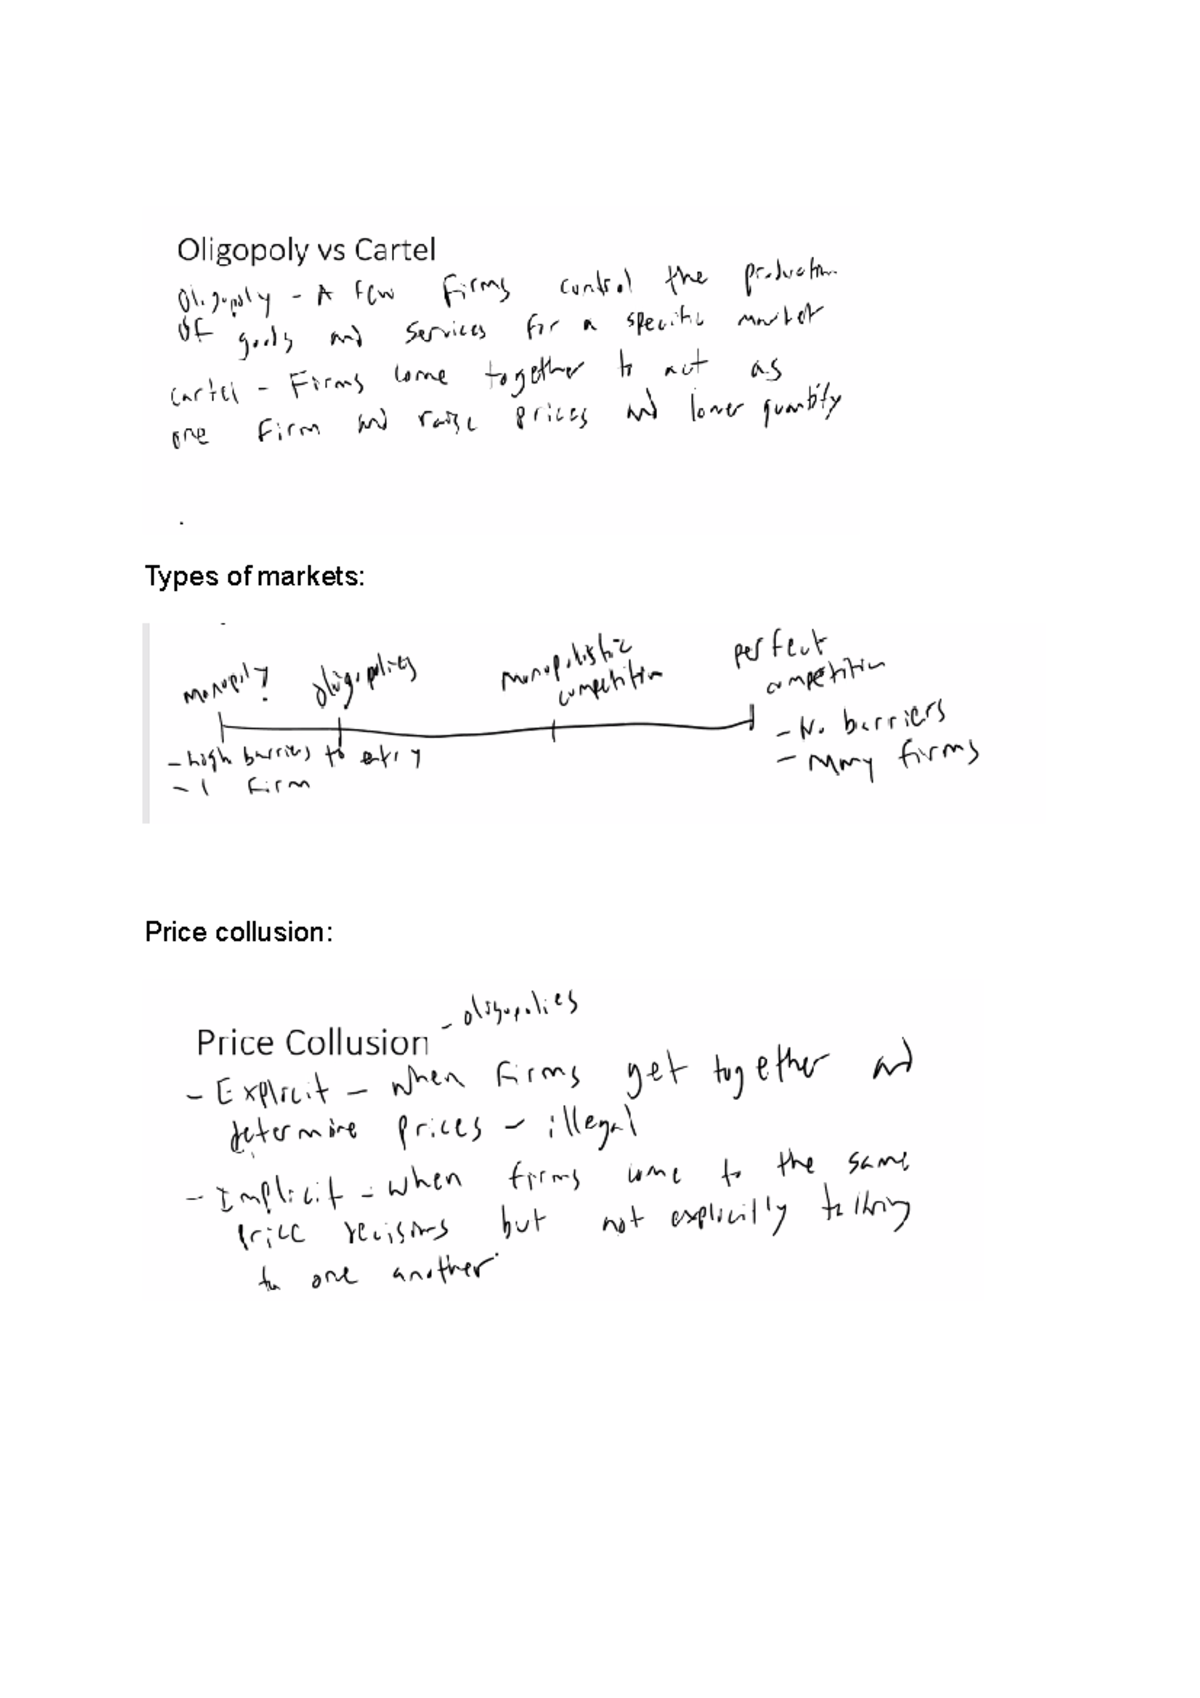 Oligopoly vs Cartel
Oligopoly - A few firms control the production
of goods and services for a specific market
Cartel - Firms come together to act as
one firm and raise prices and lower quantity
Types of markets:
monopoly oligopolies monopolistic competition perfect competition
- high barriers to entry
- 1 firm
- No barriers
- Many firms
Price collusion:
Price Collusion - oligopolies
- Explicit - when firms get together and
determine prices - illegal
- Implicit - when firms come to the same
price decisions but not explicitly talking
to one another